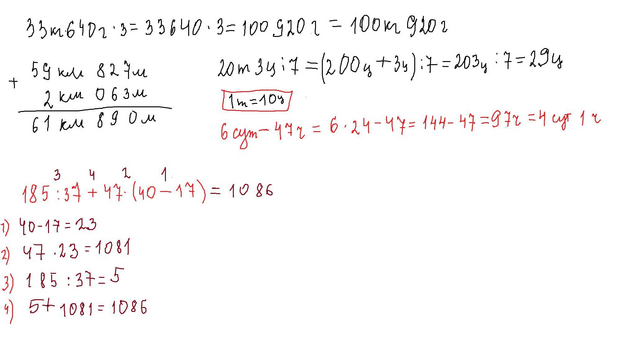 33кг640г·3=33640·3=100920г=100кг920г
+ 59 км 827м
2 км 063м
61 км 890м
20т 3ц:7=(200ц+3ц):7=203ц:7=29ц
1т=10ц
6 сут-47ч=6·24-47=144-47=97ч=4 сут 1ч
3 4 2 1
185:37+47·(40-17)=1086
1) 40-17=23
2) 47·23=1081
3) 185:37=5
4) 5+1081=1086